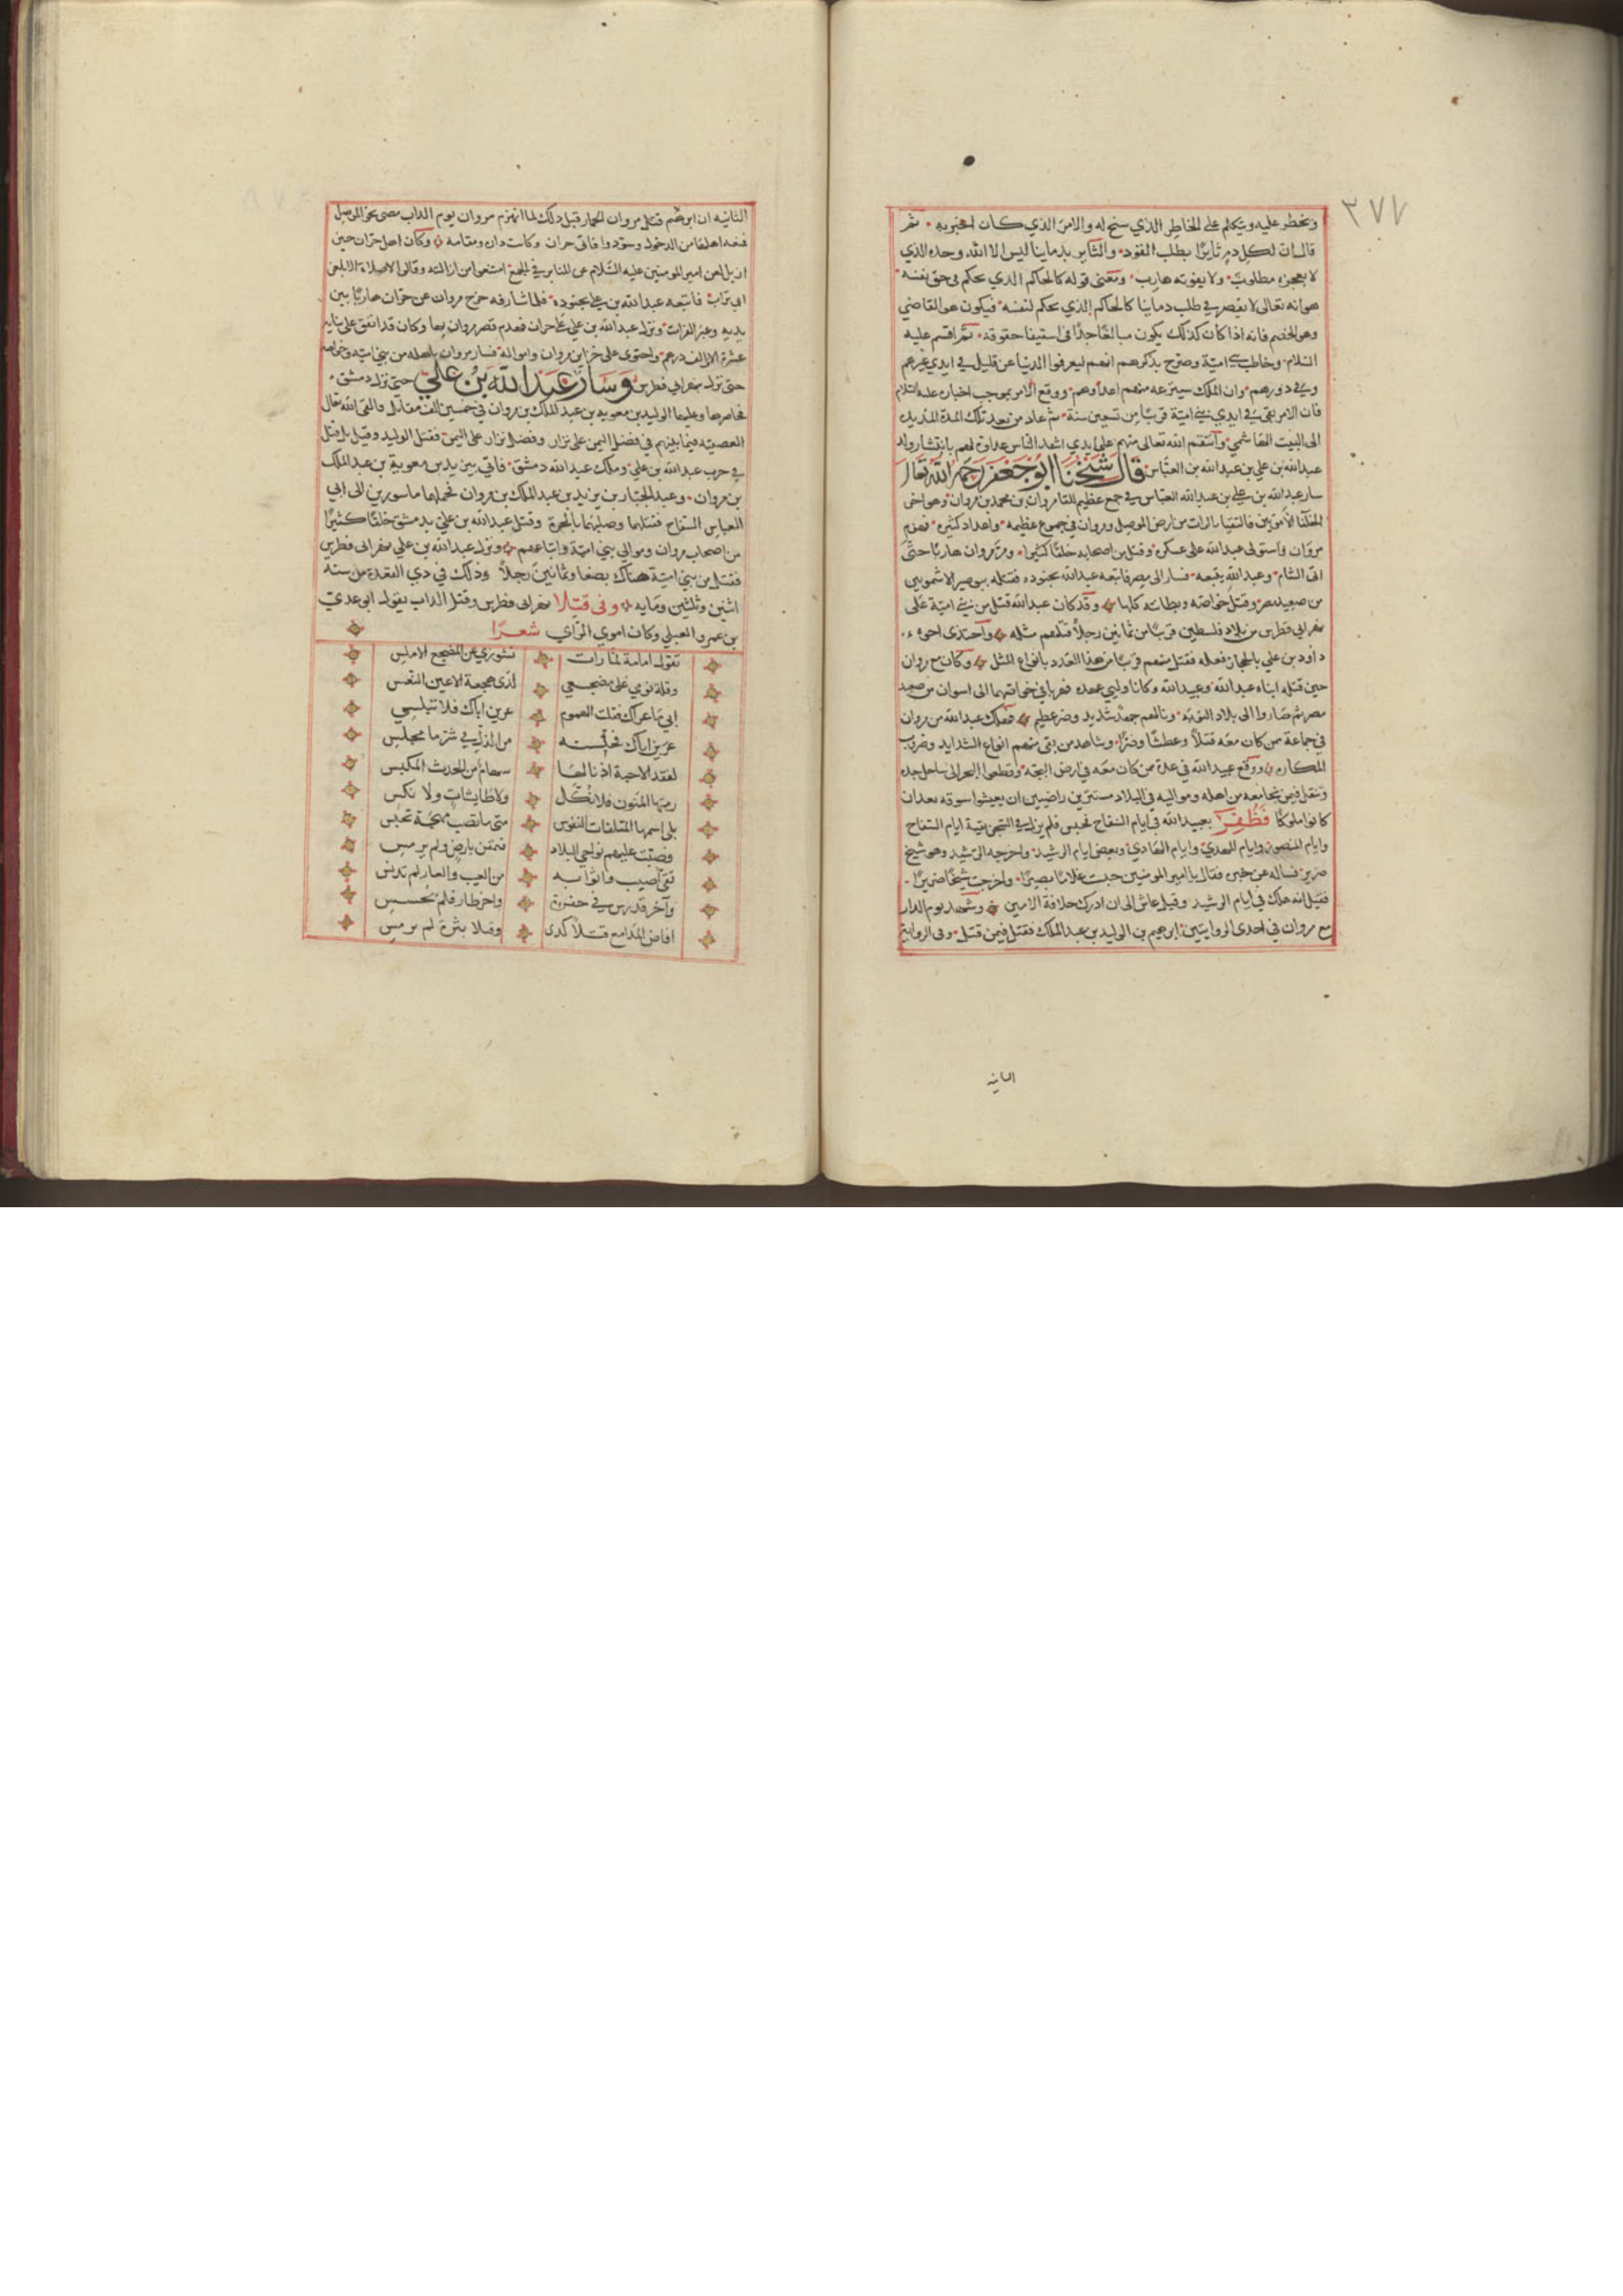 ٣٧٧
ويخطر عليه ويتكلم على الخاطر الذي سنح له والامر الذي كان اخبر به ثم
قال ان لكل دم ثايرًا يطلب القود والثاير بدماينا ليس الا الله وحده الذي
لا يعجزه مطلوب ولا يفوته هارب ومعنى قوله كالحاكم الذي يحكم في حق نفسه
هو انه تعالى لا يقصر في طلب دماينا كالحاكم الذي يحكم لنفسه فيكون هو القاضي
وهو الخصم فانه اذا كان كذلك يكون مبالغًا جدًا في استيفا حقوقه ثم اقسم عليه
السلام وخاطب بني امية وصرح بذكرهم انهم ليعرفوا الدنيا عن قليل في ايدي غيرهم
وفي دورهم وان الملك سينزعه منهم اعداوهم ووقع الامر بموجب اخباره عليه السلام
فان الامر بقي في ايدي بني امية قريبًا من تسعين سنة ثم عاد من بعد تلك المدة المديدة
الى البيت الهاشمي وانتقم الله تعالى منهم على ايدي اشد الناس عداوة لهم
عبدالله بن علي بن عبدالله بن العباس قال شيخنا ابو جعفر رحمه الله تعالى
سار عبدالله بن علي بن عبدالله العباس في جمع عظيم للقا مروان بن محمد بن مروان وهو اخر
الخلفا الامويين فالتقيا بالزاب من ارض الموصل ومروان في جموع عظيمه واعداد كثيره فهزم
مروان واستولى عبدالله على عسكره وقتل من اصحابه خلقًا كثيرا ومر مروان هاربًا حتى
اتى الشام وعبدالله يتبعه فسار الى مصر فاتبعه عبدالله بجنوده فقتله ببوصير الاشمونين
من صعيد مصر وقتل خواصه وبطانته كلها وقد كان عبدالله قتل من بني امية على
نهر ابي فطرس من بلاد فلسطين قريبًا من ثمانين رجلاً قتلهم مثله واحتذى اخوه
داود بن علي بالحجاز فعله فقتل منهم قريبًا من هذا العدد بانواع المثل وكان مع مروان
حين قتله ابناه عبدالله وعبيدالله وكانا وليي عهده فهربا في خواصهما الى اسوان من صعيد
مصر ثم صاروا الى بلاد النوبة ونالهم جهد شديد وضر عظيم فهلك عبدالله من مروان
في جماعة ممن كان معه قتلاً وعطشًا وضرًا وشاهد من بقي منهم انواع الشدايد وضروب
المكاره ووقع عبيدالله في عدة ممن كان معه في ارض البجه وقطعوا البحر الى ساحل جده
وتنقل فيمن نجا معه من اهله ومواليه في البلاد مستترين راضيين ان يعيشوا سوقه بعد ان
كانوا ملوكًا فظفر بعبيدالله في ايام السفاح فحبس فلم يزل في السجن بقية ايام السفاح
وايام المنصور وايام المهدي وايام الهادي وبعض ايام الرشيد واخرجه الرشيد وهو شيخ
ضرير فساله عن خبره فقال يا امير المومنين حبست غلامًا بصيرًا واخرجت شيخًا ضريرًا
فقيل انه هلك في ايام الرشيد وقيل عاش الى ان ادرك خلافة الامين وشهد يوم الزاب
مع مروان في احدى الروايتين ابرهيم بن الوليد بن عبد الملك فقتل فيمن قتل وفى الرواية
الثانيه
الثانيه ان ابرهيم قتله مروان الحمار قبل ذلك لما انهزم مروان يوم الزاب مضى نحو الموصل
فمنعه اهلها من الدخول وسودوا فاتى حران وكانت داره ومقامه وكان اهل حران حين
ازيل لعن امير المومنين عليه السلام عن المنابر في الجمع امتنعوا من ازالته وقالوا لا صلاة الا بلعن
ابي تراب فاتبعه عبدالله بن علي بجنوده فلما شارفه خرج مروان عن حران هاربًا بين
يديه وعبر الفرات ونزل عبدالله بن علي على حران فهدم قصر مروان بها وكان قد انفق على بنايه
عشرة الاف الف درهم واحتوى على خزاين مروان وامواله فسار مروان باهله من بني امية وخواصه
حتى نزل بنهر ابي فطرس وسار عبدالله بن علي حتى نزل دمشق
فحاصرها وعليها الوليد بن معوية بن عبد الملك بن مروان في خمسين الف مقاتل فالقى الله تعالى
العصبيه فيما بينهم في فضل اليمن على نزار وفضل نزار على اليمن فقتل الوليد وقيل بل قتل
في حرب عبدالله بن علي وملك عبدالله دمشق فاتي بيزيد بن معوية بن عبد الملك
بن مروان وعبد الجبار بن يزيد بن عبد الملك بن مروان فحملهما ماسورين الى ابي
العباس السفاح فقتلهما وصلبهما بالحيرة وقتل عبدالله بن علي بدمشق خلقًا كثيرًا
من اصحاب مروان وموالي بني امية واتباعهم ونزل عبدالله بن علي نهر ابي فطرس
فقتل من بني امية هناك بضعا وثمانين رجلاً وذلك في ذي القعدة من سنه
اثنين وثلثين ومايه وفى قتلا نهر ابي فطرس وقتلا الزاب يقول ابو عدي
بن عمرو العبلي وكان اموي الراي شعرًا
تقول امامة لما رات نشوزي عن المضجع الاملس
وقلة نومي على مضجعي لذى هجعة الاعين النعس
ابي ما عراك فقلت الهموم عرين اباك فلا تبلسي
عرين اباك فحبسنه من الذل في شر ما محبس
لفقد الاحبة اذ نالها سهام من الحدث المكيس
رمتها المنون فلا نكل ولا طايشات ولا نكس
باسهمها المتلفات النفوس متى ما تصب مهجة تخلس
فصبت عليهم نواحي البلاد فملقى بارض ولم يرمس
تقي اصيب واثوابه من العيب والعار لم تدنس
وآخر قد رس في حفرة واخر طار فلم يحسس
افاض المدامع قتلا كدى وقتلا بثرة لم يرمس